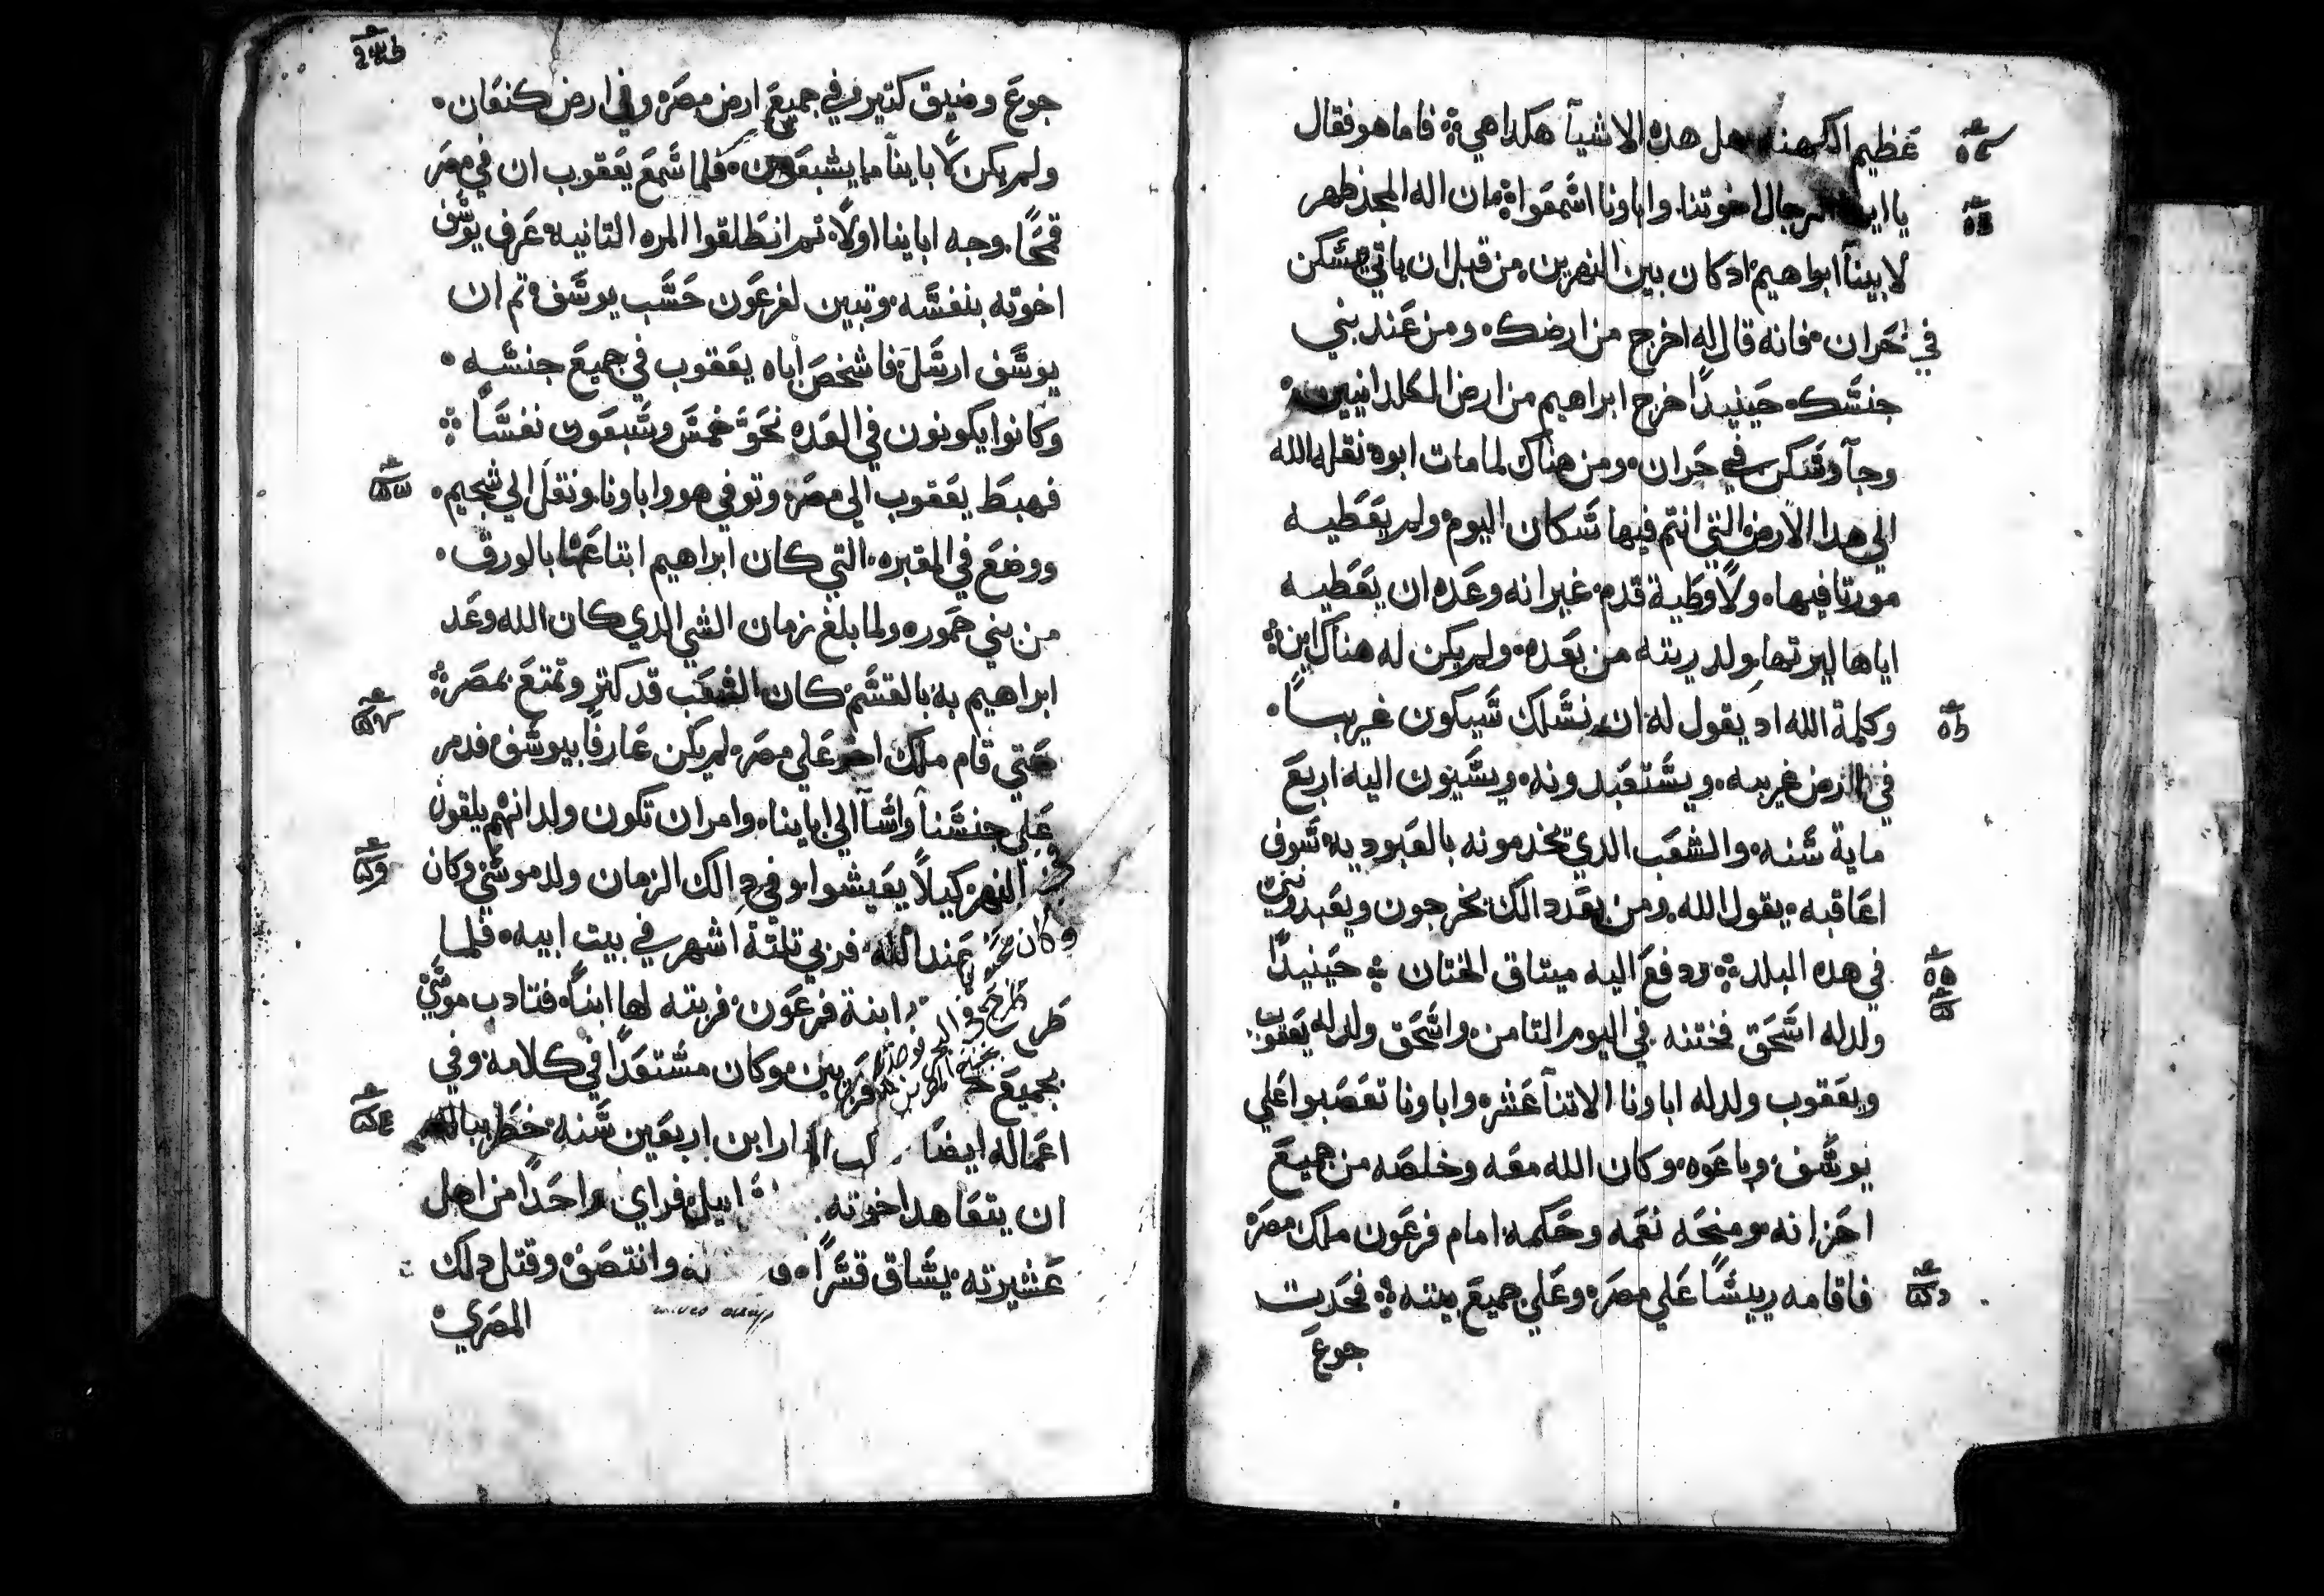 عظيم الكهنه هل هده الاشيآ هكدا هي فاما هو فقال
يا ايها الرجال اخوتنا وابا ونا اشمعوا ان اله المجد ظهر
لابينآ ابراهيم ادكان بين النهرين من قبل ان ياتي يشكن
في حران فانه قال له اخرج من ارضك ومن عند بني
جنشك حينيدًا خرج ابراهيم من ارض الكلدانيين
وجآ وشكن في حران ومن هناك لما مات ابوه نقله الله
الي هدا الارض التي انتم فيها شكان اليوم ولم يعطيه
مورتا فيها ولا وطية قدم غير انه وعده ان يعطيه
اياها ليرتها ولدريته من بعده ولم يكن له هناك ابن
وكلمة الله اد يقول له ان نشلك شيكون غريبًا
في ارض غريبه ويشتعبدونه ويشيون اليه اربع
ماية شنه والشعب الدي يخدمونه بالعبوديه شوف
اعاقبه يقول الله ومن بعد دالك يخرجون ويعبدونني
في هده البلد ودفع اليه ميتاق الختان حينيدًا
ولد له اشحق فختنه في اليوم التامن واشحق ولد له يعقوب
ويعقوب ولد له ابا ونا الاتنآ عشر وابا ونا تعصبوا علي
يوشف وباعوه وكان الله معه وخلصه من جميع
احزانه ومنحه نعمه وحكمه امام فرعون ملك مصر
فاقامه رييشًا علي مصر وعلي جميع بيته فحديت
جوع
جوع وضيق كتير في جميع ارض مصر وفي ارض كنعان
ولم يكن لابا ينآ ما يشبعون فلما شمع يعقوب ان في مصر
قمحًا وجه ابا ينا اولًا تم انطلقوا المره التانيه عرف يوشف
اخوته بنفشه وتبين لفرعون حشب يوشف تم ان
يوشف ارشل فاشخص اباه يعقوب في جميع جنشه
وكانوا يكونون في العده نحو خمش وشبعون نفشًا
فهبط يعقوب الي مصر وتوفي هو وابا ونا ونقل الي شجيم
ووضع في المقبره التي كان ابراهيم ابتاعها بالورق
من بني حموره ولما بلغ زمان الشي الدي كان الله وعد
ابراهيم به بالقشم كان الشعب قد كتر وتمتع بمصر
حتي قام ملك اخر علي مصر لم يكن عارفًا بيوشف فدمر
علي جنشنا واشآ الي ابا ينا وامر ان تكون ولدانهم يلقون
في النهر كيلا يعيشوا وفي دالك الزمان ولد موشي وكان
وكان عند الله فربي تلتة اشهر في بيت ابيه فلما
طرح ابنة فرعون فربته لها ابنًا فتادب موشي
بجميع وكان مشتعدًا في كلامه وفي
اعماله ايضا ار ابن اربعين شنه خطر بباله
ان يتعاهد اخوته اييل فراي واحدًا من اهل
عشيرته يشاق قشرًا وانتصف وقتل دلك
المصري